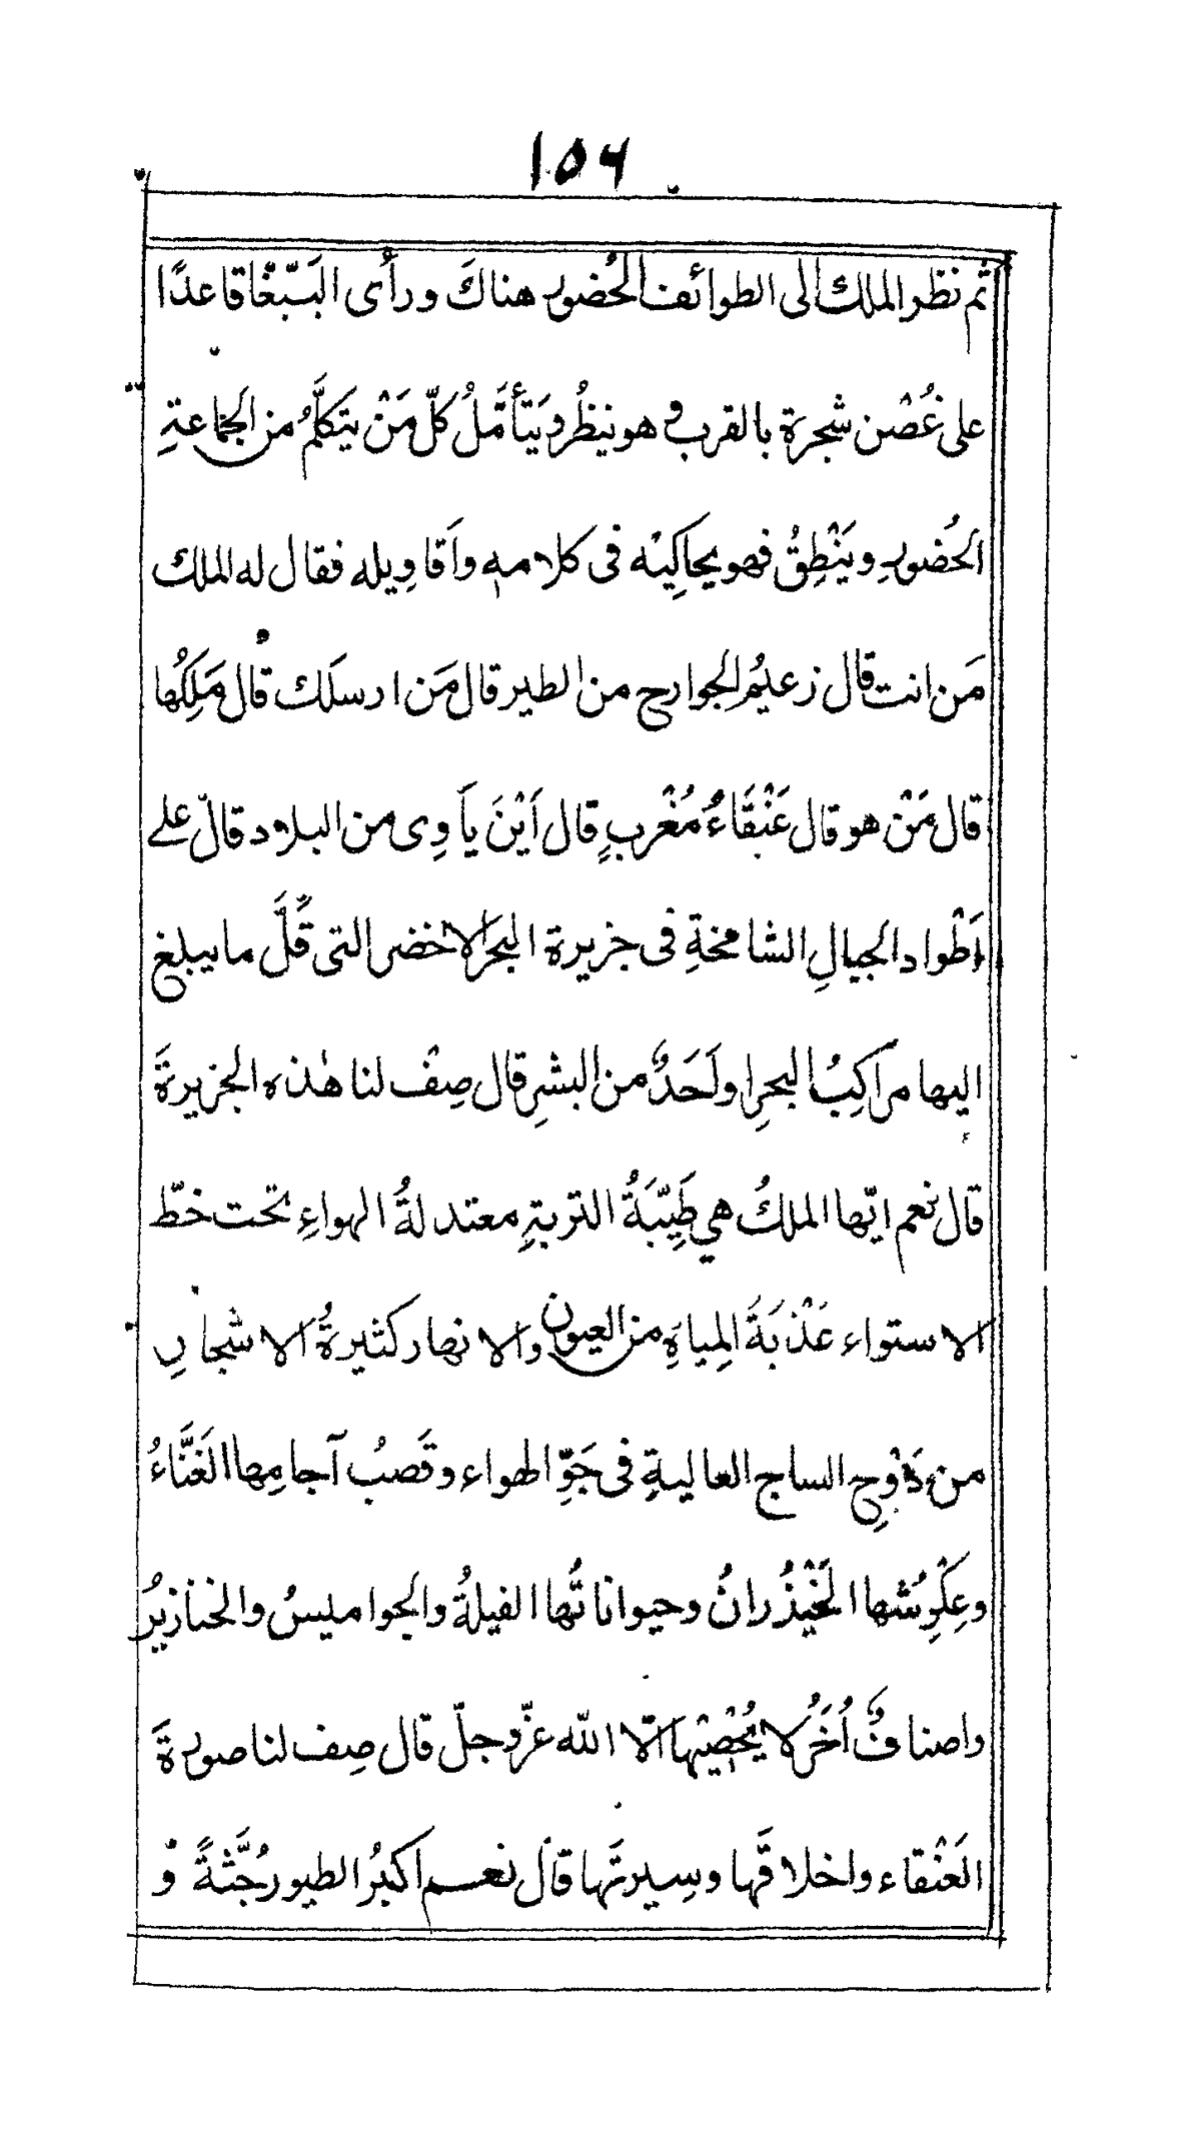 ١٥٦
ثم نظر الملك الى الطوائف الحُضور هناكَ ورأى البَبّغَا قاعدًا
على غُصْن شجرة بالقرب وهو ينظُر ويَتأمَّلُ كلّ مَنْ يتكلَّمُ من الجماعةِ
الحُضورِ ويَنْطِقُ فهو يحاكِيْه فى كلامه واَقاوِيله فقال له الملك
مَن انت قال زعيمُ الجوارح من الطير قال مَن ارسلَك قال مَلِكُها
قال مَنْ هو قال عَنْقَاءُ مُغْرِبٍ قال اَيْنَ يأوِى من البلاد قال على
اَطْواد الجبالِ الشامخةِ فى جزيرة البحر الاخضر التى قَلَّ ما يبلغ
اليها مراكِبُ البحرِ اولَحَدٌ من البشرِ قال صِفْ لنا هٰذه الجزيرةَ
قال نعم ايّها الملكُ هي طَيِّبَةُ التربةِ معتدلةُ الهواءِ تحت خطّ
الاستواء عَذْبَةَ المِياهِ من العيون والانهار كثيرةُ الاشجارِ
من دَوْحِ الساج العاليةِ فى جَوِّ الهواء وقَصبُ آجامِها الغَنَّاءُ
وعِكْرِشُها الخَيْزُرانُ وحيواناتُها الفيلةُ والجواميسُ والخنازيرُ
واصنافٌ اُخَرُ لا يُحْصِيْها الّا اللّه عزّوجلّ قال صِف لنا صورةَ
العَنْقاء واخلاقَها وسِيرتَها قال نعم اَكبرُ الطيور جُثَّةً وَ